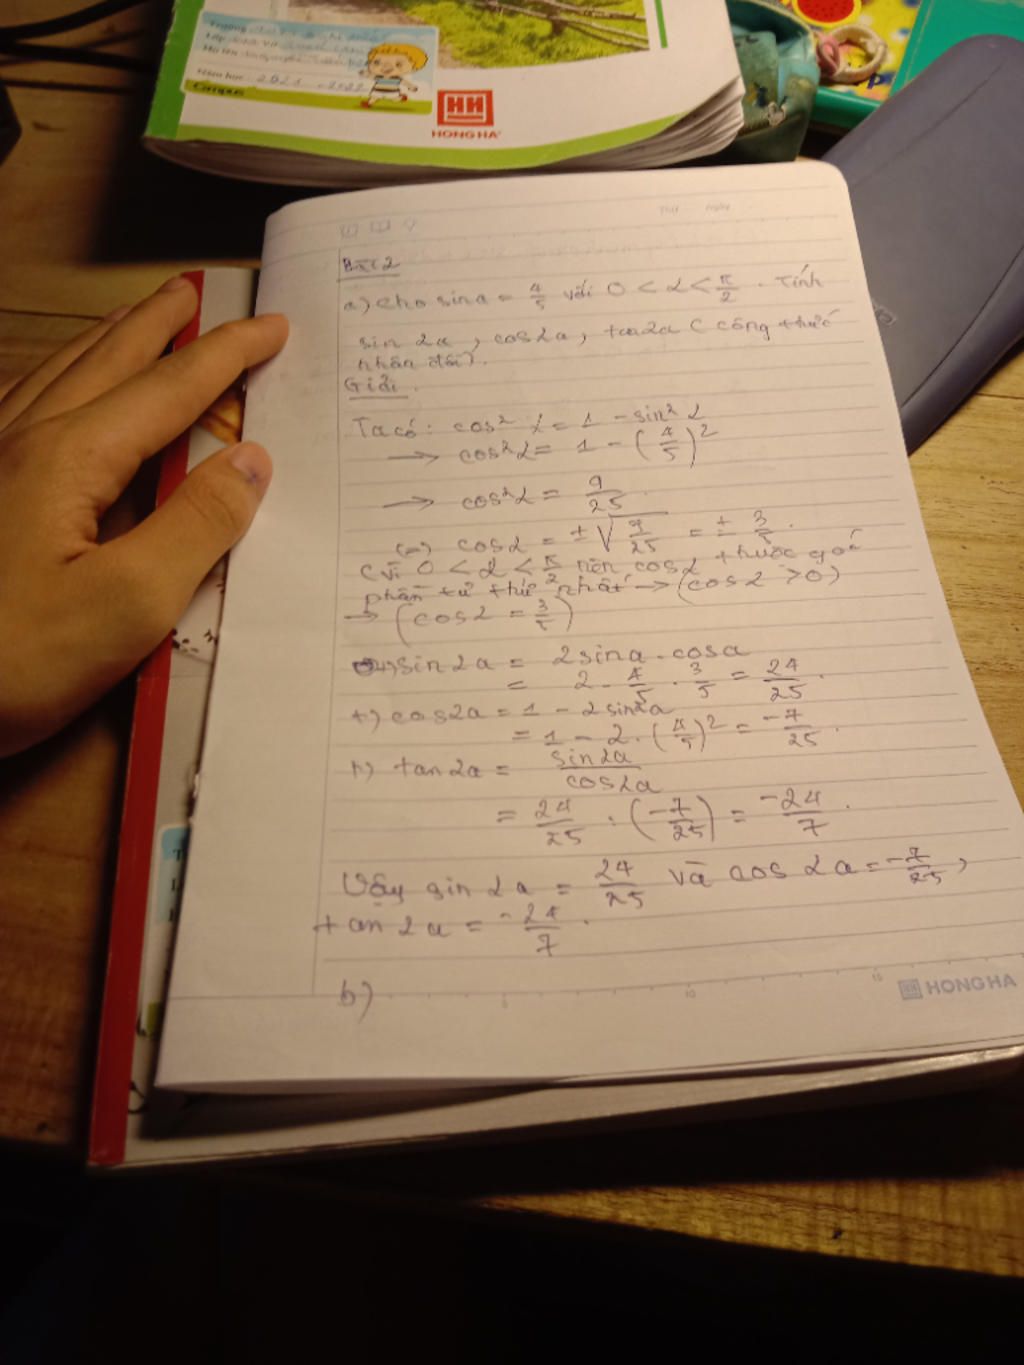 Trường
Lớp
Họ tên
Năm học: 2021
Campus
HH
HONG HA
Thứ Ngày
Bài 2
a) Cho sin a = 4/5 với 0 < α < π/2 . Tính
sin 2a , cos2a , tan2a ( công thức
nhân đôi).
Giải .
Ta có: cos² α = 1 - sin² α
→ cos²α = 1 - (4/5)²
→ cos²α = 9/25
(=) cosα = ±√(9/25) = ± 3/5 .
( vì 0 < α < π/2 nên cosα thuộc góc
phần tư thứ nhất → (cosα > 0)
→ (cosα = 3/5)
+) sin2a = 2sina . cosa
= 2 . 4/5 . 3/5 = 24/25 .
+) cos2a = 1 - 2sin²a
= 1 - 2 . (4/5)² = -7/25 .
+) tan2a = sin2a/cos2a
= 24/25 : (-7/25) = -24/7 .
Vậy sin 2a = 24/25 và cos 2a = -7/25 ,
tan 2a = -24/7 .
b)
5 10 15
HH HONG HA